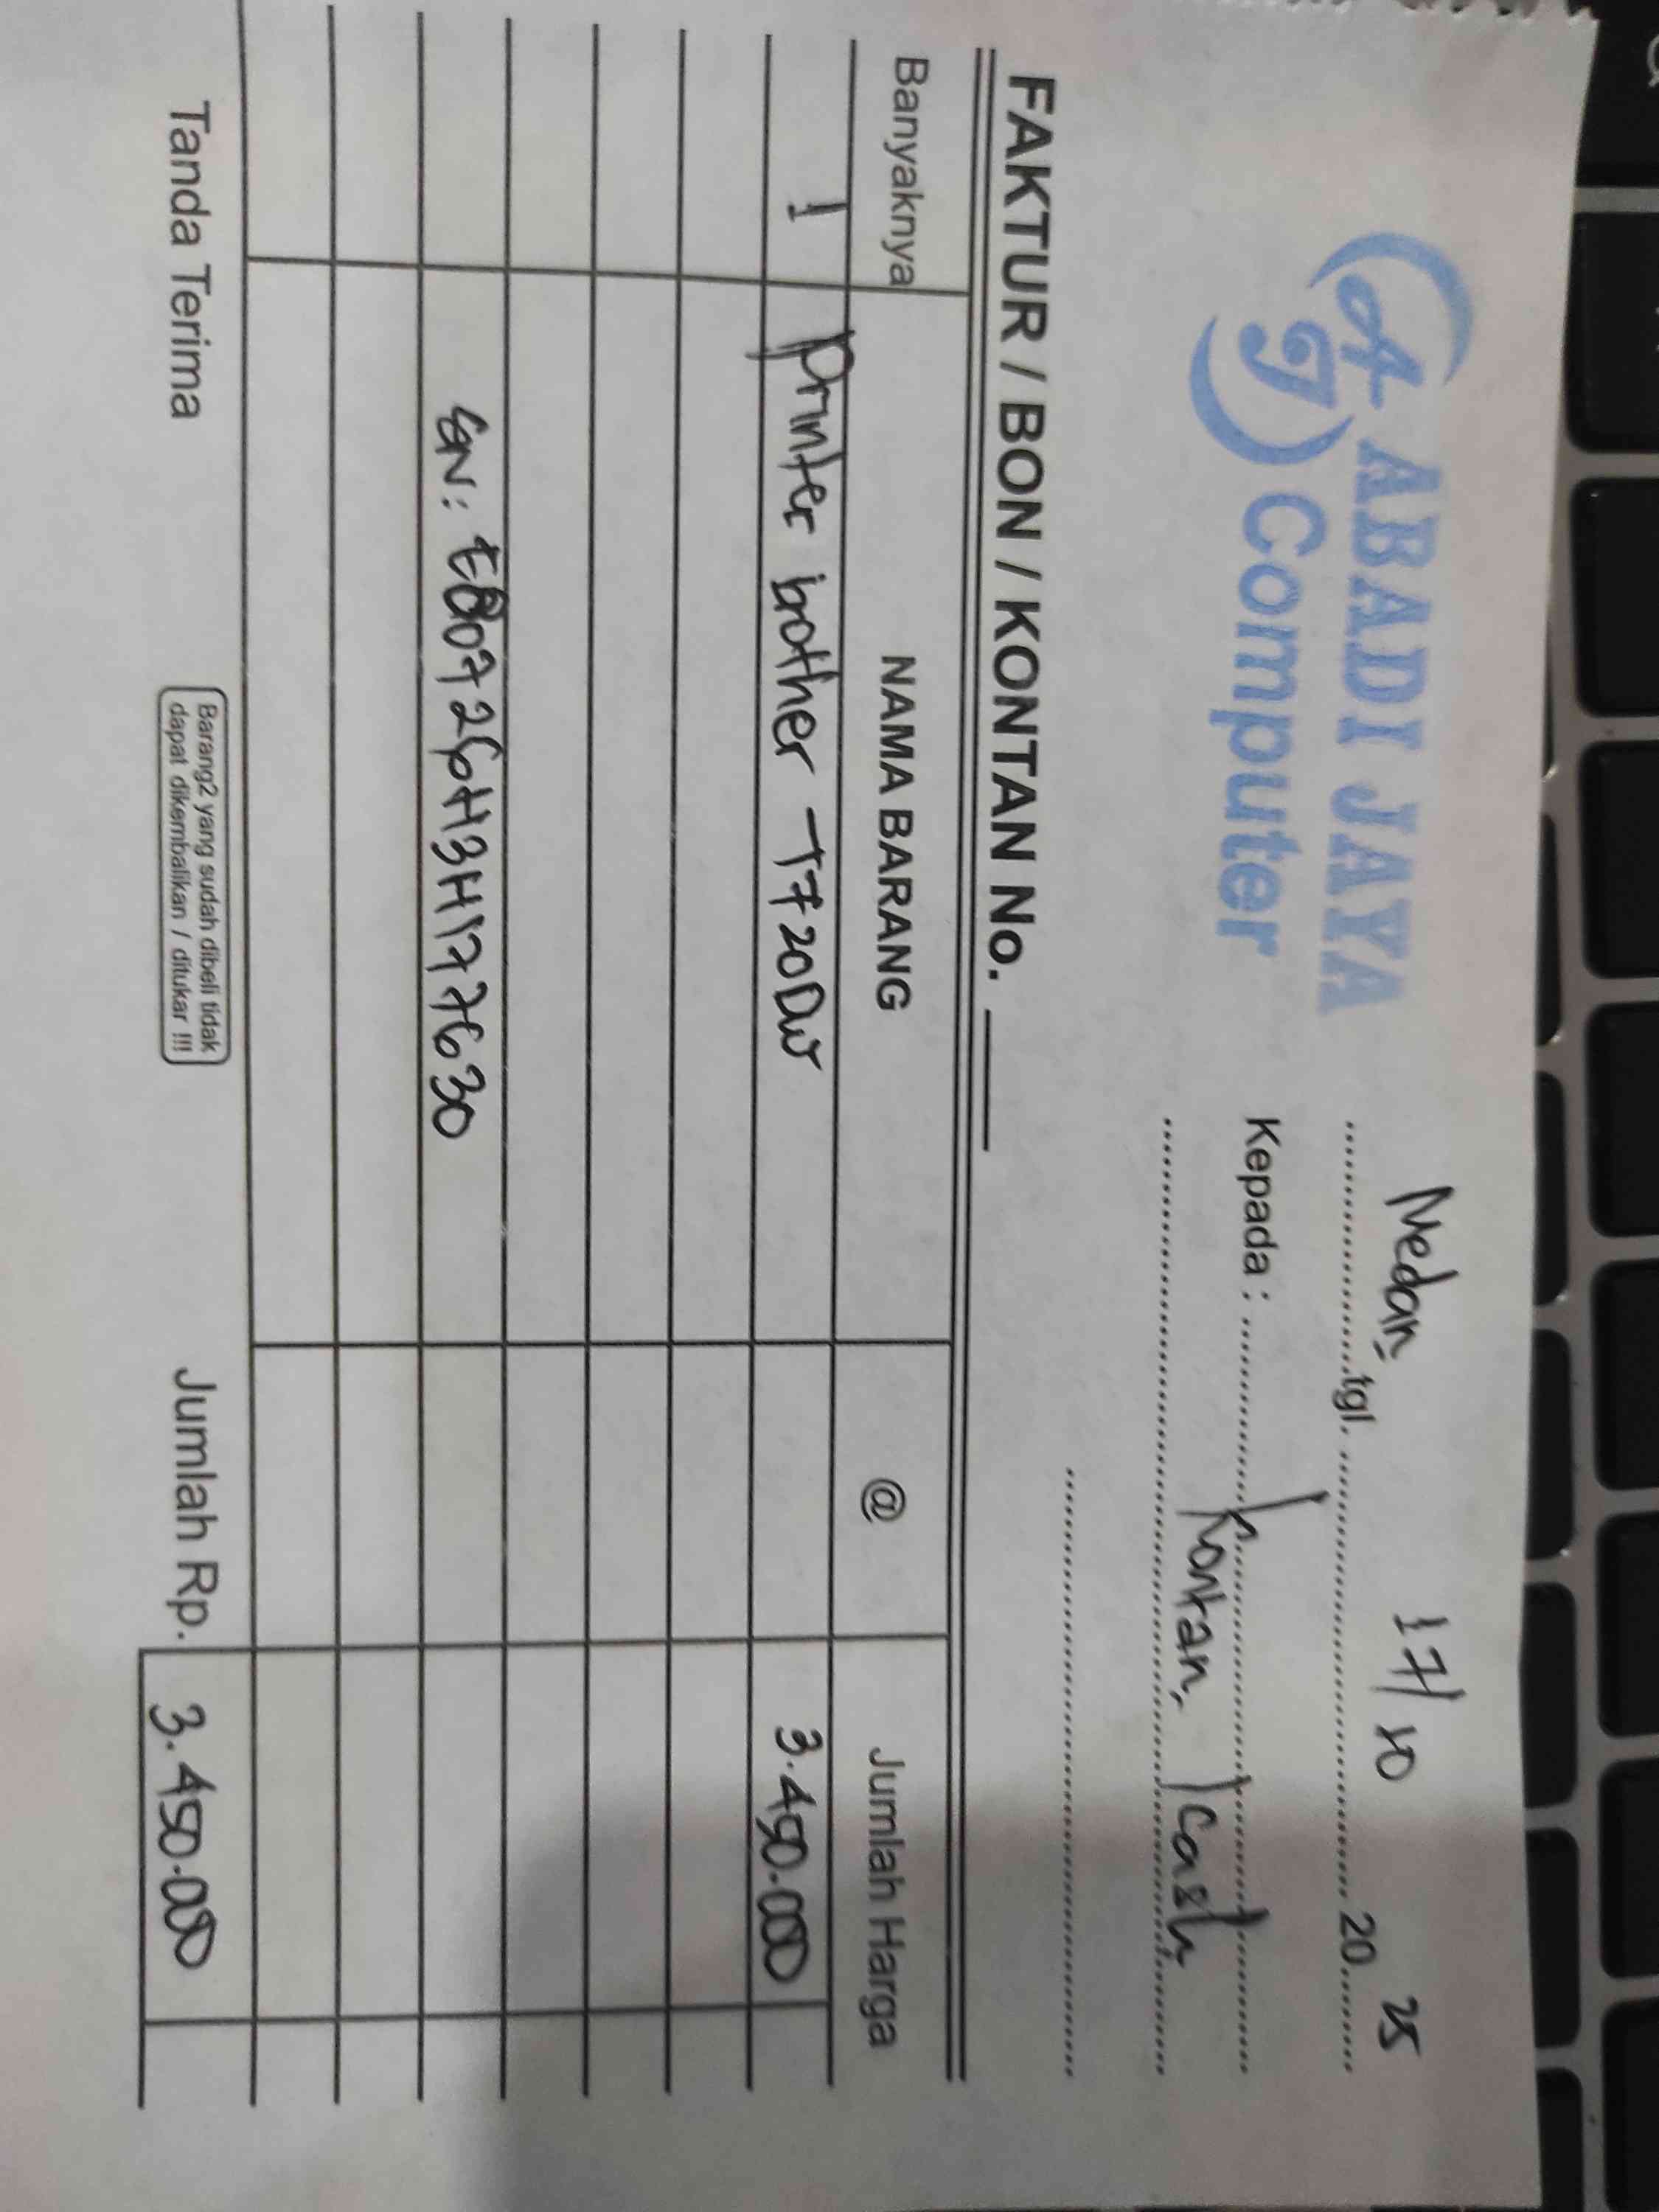 ABADI JAYA
Computer
Medan, tgl. 17/10 2025
Kepada : Kontan / Cash
FAKTUR / BON / KONTAN No.
Banyaknya NAMA BARANG @ Jumlah Harga
1 Printer brother T720DW 3.450.000
SN:
Tanda Terima
Barang2 yang sudah dibeli tidak
dapat dikembalikan / ditukar !!!
Jumlah Rp. 3.450.000